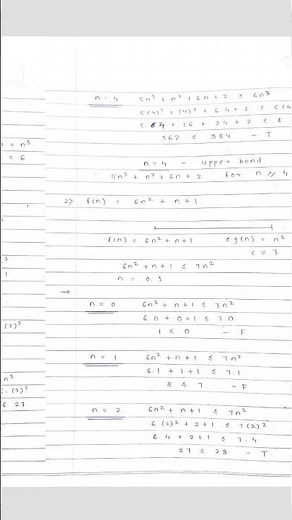 n = 4   5n³ + n² + 6n + 2 ≤ 6n³
5(4)³ + (4)² + 6.4 + 2 ≤ 6(4
5 64 + 16 + 24 + 2 ≤ 6.
362 ≤ 384 - T
= n³
= 6
n = 4 - upper bond
5n³ + n² + 6n + 2 for n ≥ 4
2) f(n) = 6n² + n + 1
f(n) = 6n² + n + 1   g(n) = n²
c = 7
3
6n² + n + 1 ≤ 7n²
1
n = 0.1
→
n = 0   6n² + n + 1 ≤ 7n²
(2)³
6.0 + 0 + 1 ≤ 7.0
1 ≤ 0 - F
n = 1   6n² + n + 1 ≤ 7n²
n³
6.1 + 1 + 1 ≤ 7.1
6.(1)³
8 ≤ 7 - F
6.27
n = 2   6n² + n + 1 ≤ 7n²
6(2)² + 2 + 1 ≤ 7(2)²
6.4 + 2 + 1 ≤ 7.4
27 ≤ 28 - T